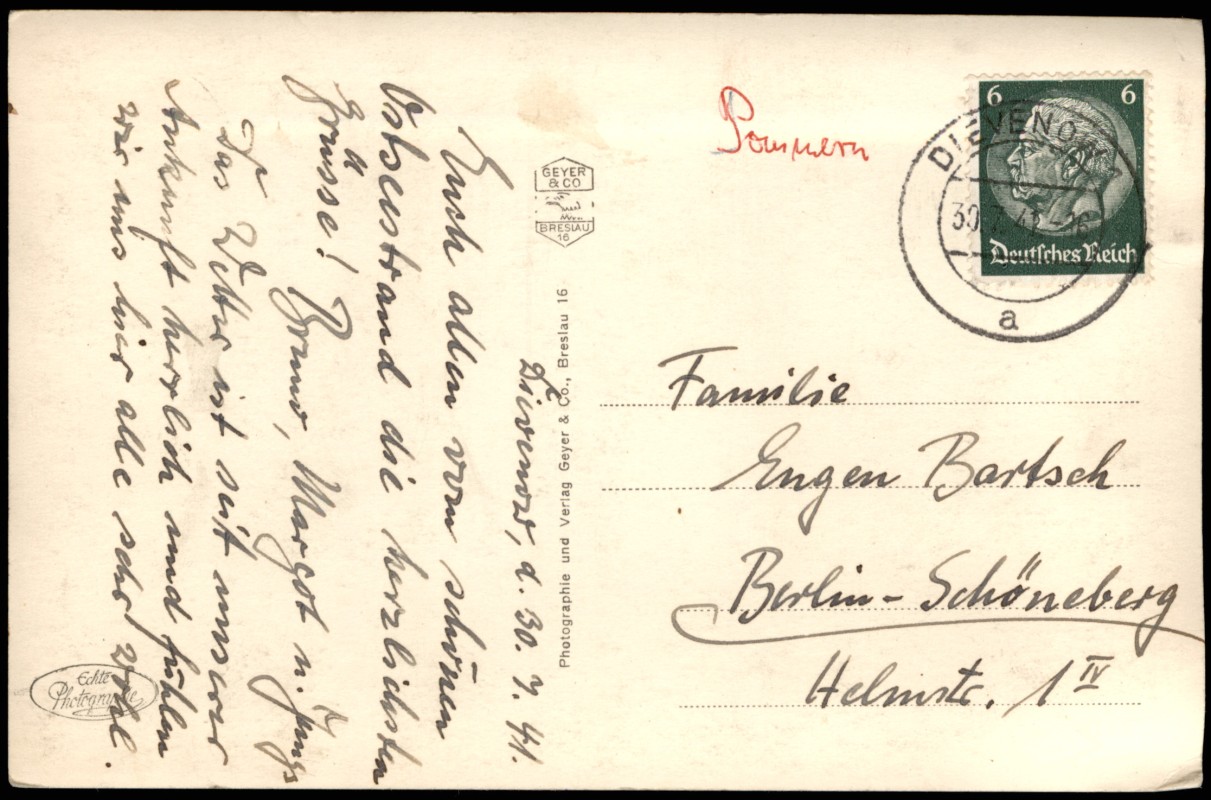 Dievenow, d. 30.7.41.
Euch allen vom schönen
Ostseestrand die herzlichsten
Grüsse!
Bruno, Margot u. Jungs
Das Wetter ist seit unserer
Ankunft herrlich und fühlen
wir uns hier alle sehr wohl.
GEYER
& CO
BRESLAU
16
Photographie und Verlag Geyer & Co., Breslau 16
Echte
Photographie
Pommern
6 6
Deutsches Reich
DIEVENOW
30.7.41-16
a
Familie
Eugen Bartsch
Berlin-Schöneberg
Helmstr. 1 IV